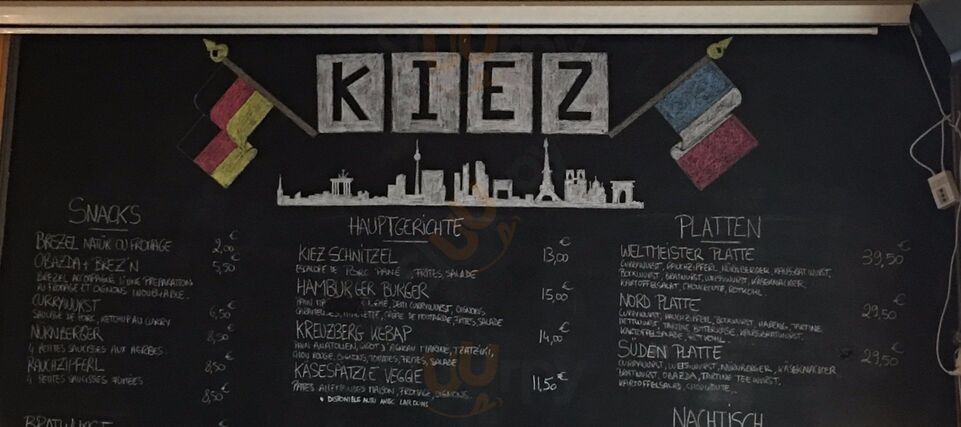 KIEZ
SNACKS
BREZEL NATUR OU FROMAGE 2,00 €
OBAZDA + BREZ'N 5,50 €
BREZEL ACCOMPAGNÉ D'UNE PREPARATION
AU FROMAGE ET OIGNONS
CURRYWURST 6,50 €
SAUCISSE DE PORC, KETCHUP AU CURRY
NÜRNBERGER 8,50 €
4 PETITES SAUCISSES AUX HERBES
RAUCHZIPFERL 8,50 €
4 PETITES SAUCISSES FUMÉES
8,50 €
HAUPTGERICHTE
KIEZ SCHNITZEL 13,00 €
ESCALOPE DE PORC PANÉ, FRITES, SALADE
HAMBURGER BURGER 15,00 €
DEMI CURRYWURST, OIGNONS
FRITES, SALADE
KREUZBERG KEBAP 14,00 €
PAIN ANATOLIEN, GIGOT D'AGNEAU MARINÉ, TZATZIKI,
CHOU ROUGE, OIGNONS, TOMATES, FRITES, SALADE
KÄSESPÄTZLE VEGGIE 11,50 €
PATES ALLEMANDES MAISON, FROMAGE, OIGNONS
* DISPONIBLE AUSSI AVEC LARDONS
PLATTEN
WELTMEISTER PLATTE 39,50 €
CURRYWURST, RAUCHZIPFERL, NÜRNBERGER,
BOCKWURST, BRATWURST, WEISSWURST, KÄSEKNACKER
KARTOFFELSALAT, CHOUCROUTE, ROTKOHL
NORD PLATTE 29,50 €
CURRYWURST, RAUCHZIPFERL, BOCKWURST, TARTINE
METTWURST, TARTINE
KARTOFFELSALAT, ROTKOHL
SÜDEN PLATTE 29,50 €
CURRYWURST, WEISSWURST, NÜRNBERGER, KÄSEKNACKER
BRATWURST, OBAZDA, TARTINE TEEWURST,
KARTOFFELSALAT, CHOUCROUTE
NACHTISCH